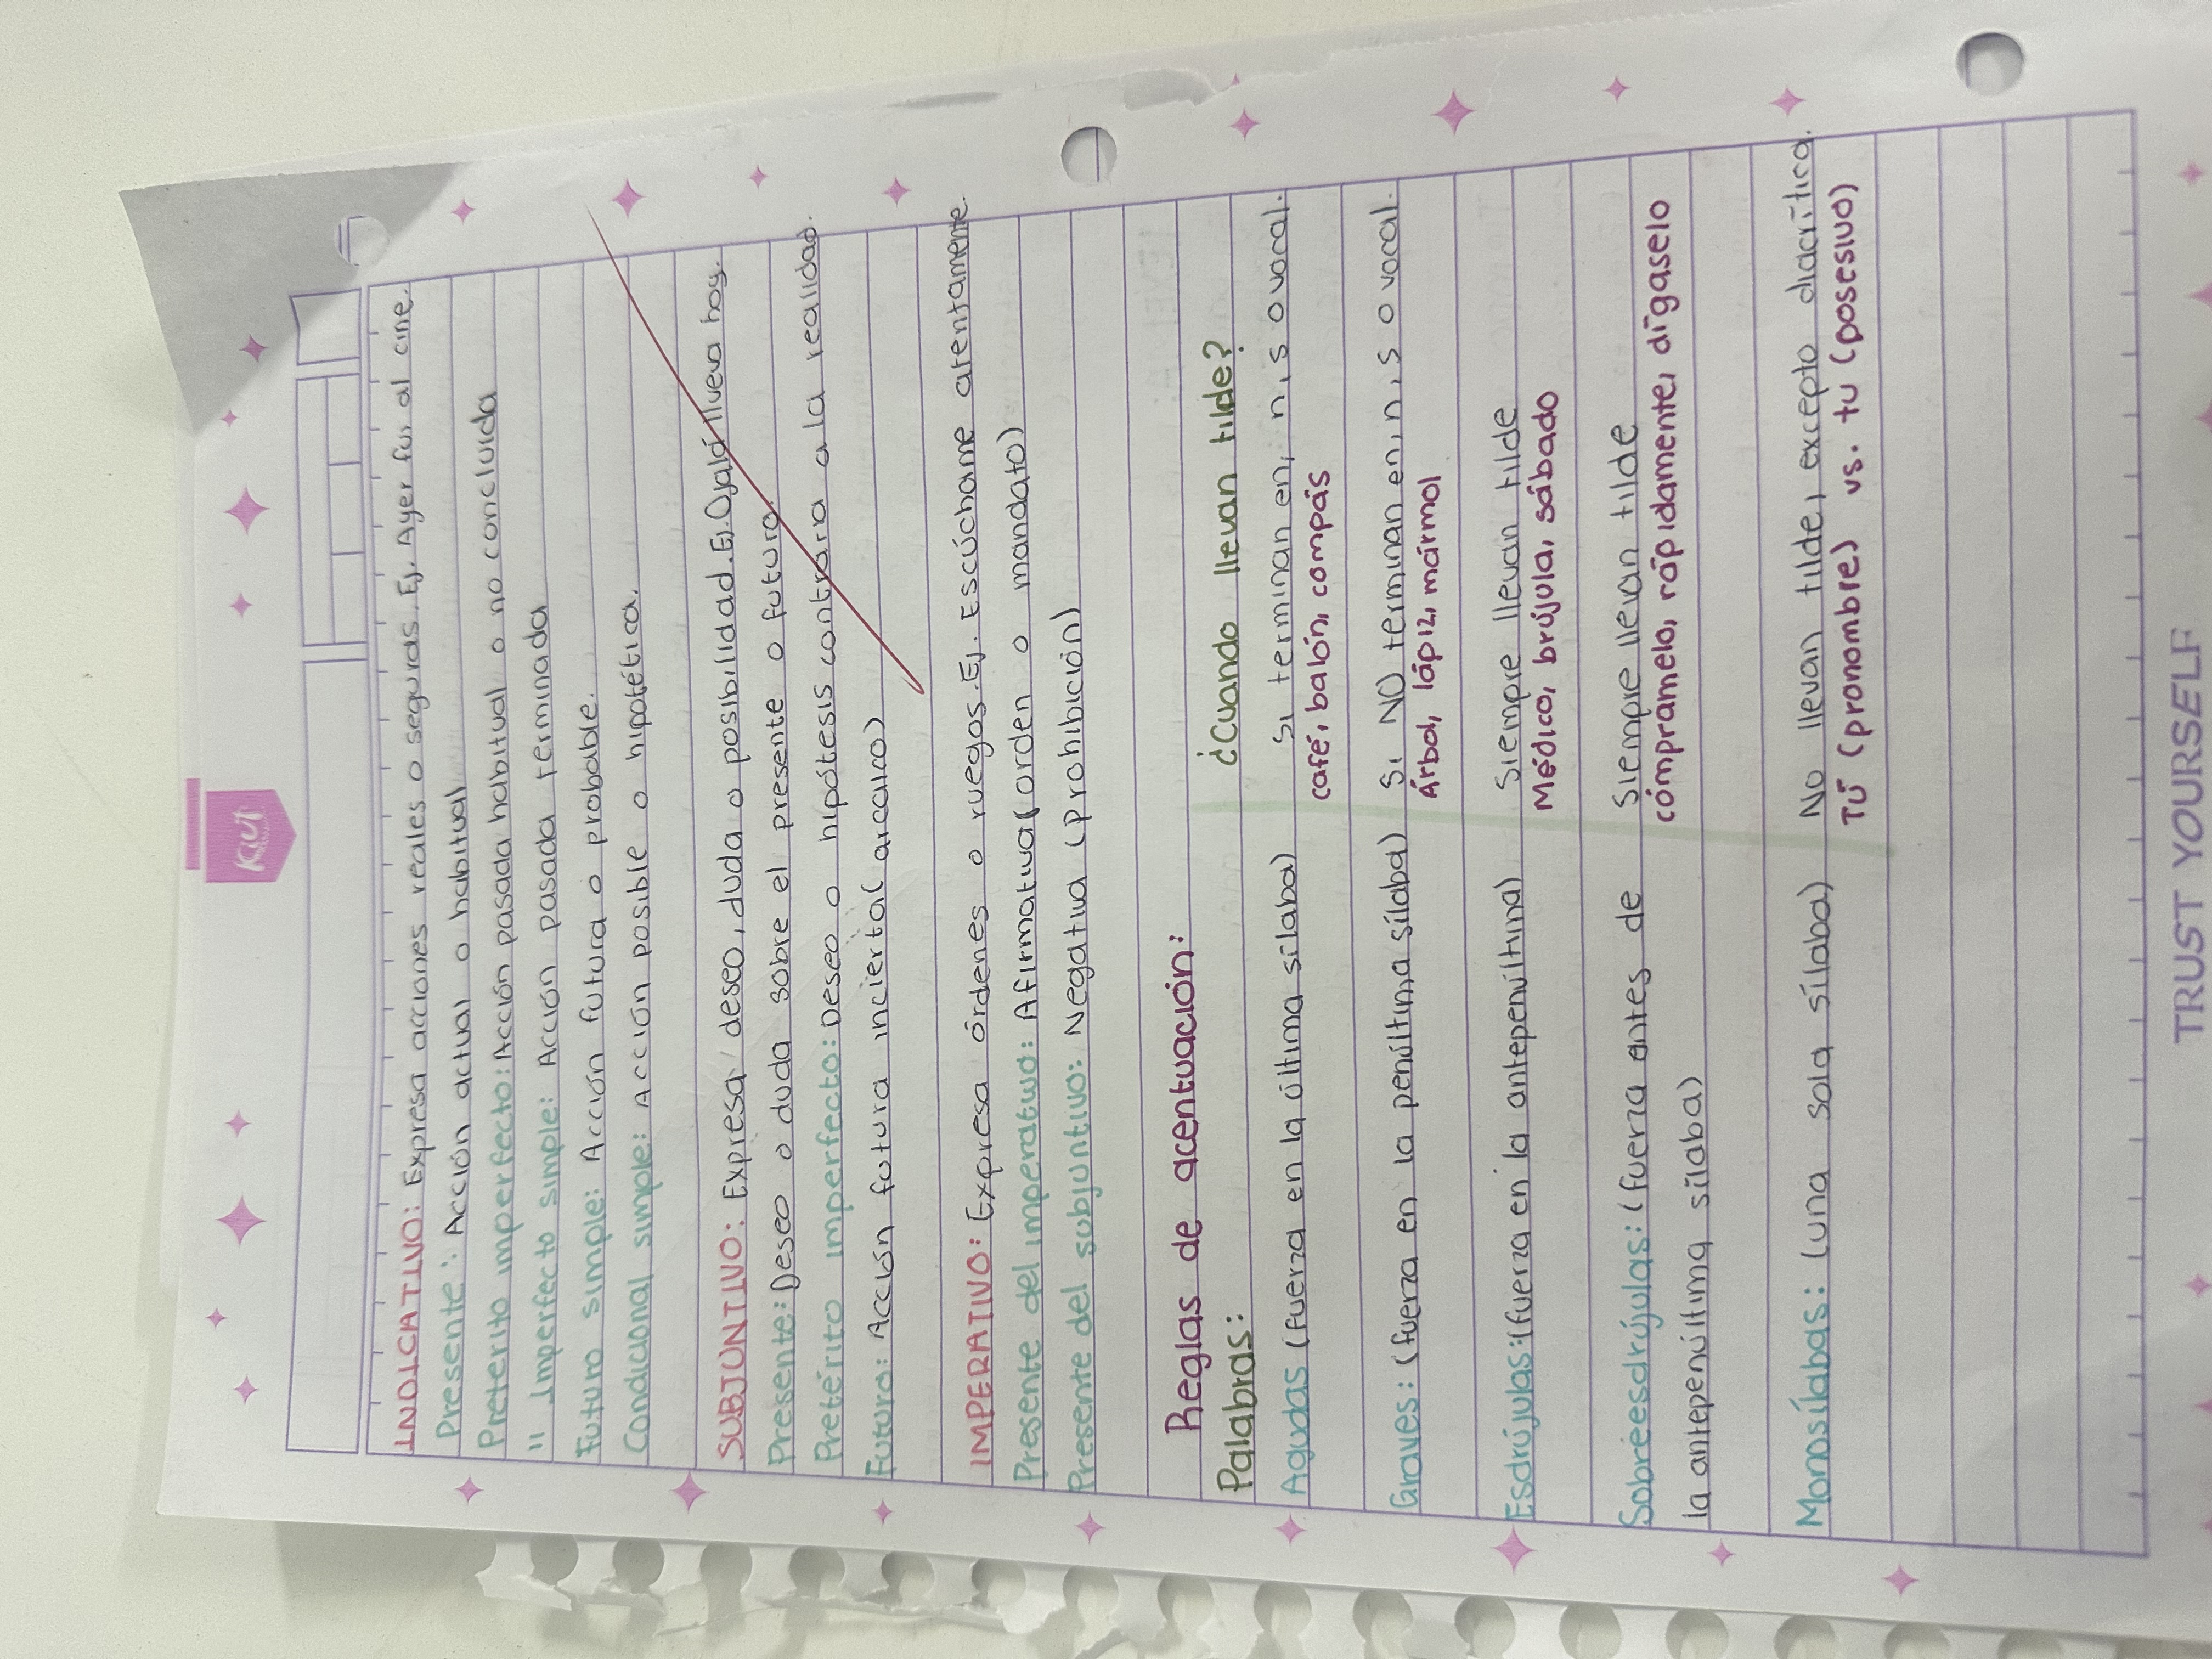 Kiut
INDICATIVO: Expresa acciones reales o seguras. Ej. Ayer fui al cine.
Presente: Acción actual o habitual
Preterito imperfecto: Acción pasada habitual o no concluida
" Imperfecto simple: Acción pasada terminada
Futuro simple: Acción futura o probable.
Condicional simple: Acción posible o hipotética.
SUBJUNTIVO: Expresa deseo, duda o posibilidad. Ej. Ojalá llueva hoy.
Presente: Deseo o duda sobre el presente o futuro.
Pretérito imperfecto: Deseo o hipótesis contraria a la realidad.
Futuro: Acción futura incierta (arcaico)
IMPERATIVO: Expresa órdenes o ruegos. Ej. Escúchame atentamente.
Presente del imperativo: Afirmativa (orden o mandato)
Presente del subjuntivo: Negativa (Prohibición)
Reglas de acentuación:
Palabras: ¿Cuando llevan tilde?
Agudas (fuerza en la última sílaba) Si terminan en, n, s o vocal.
café, balón, compás
Graves: (fuerza en la penúltima sílaba) Si NO terminan en, n, s o vocal.
Árbol, lápiz, mármol
Esdrújulas: (fuerza en la antepenúltima) Siempre llevan tilde
Médico, brújula, sábado
Sobreesdrújulas: (fuerza antes de Siempre llevan tilde
la antepenúltima sílaba) cómpramelo, rápidamente, dígaselo
Monosílabas: (una sola sílaba) No llevan tilde, excepto diacrítica.
Tú (pronombre) vs. tu (posesivo)
TRUST YOURSELF